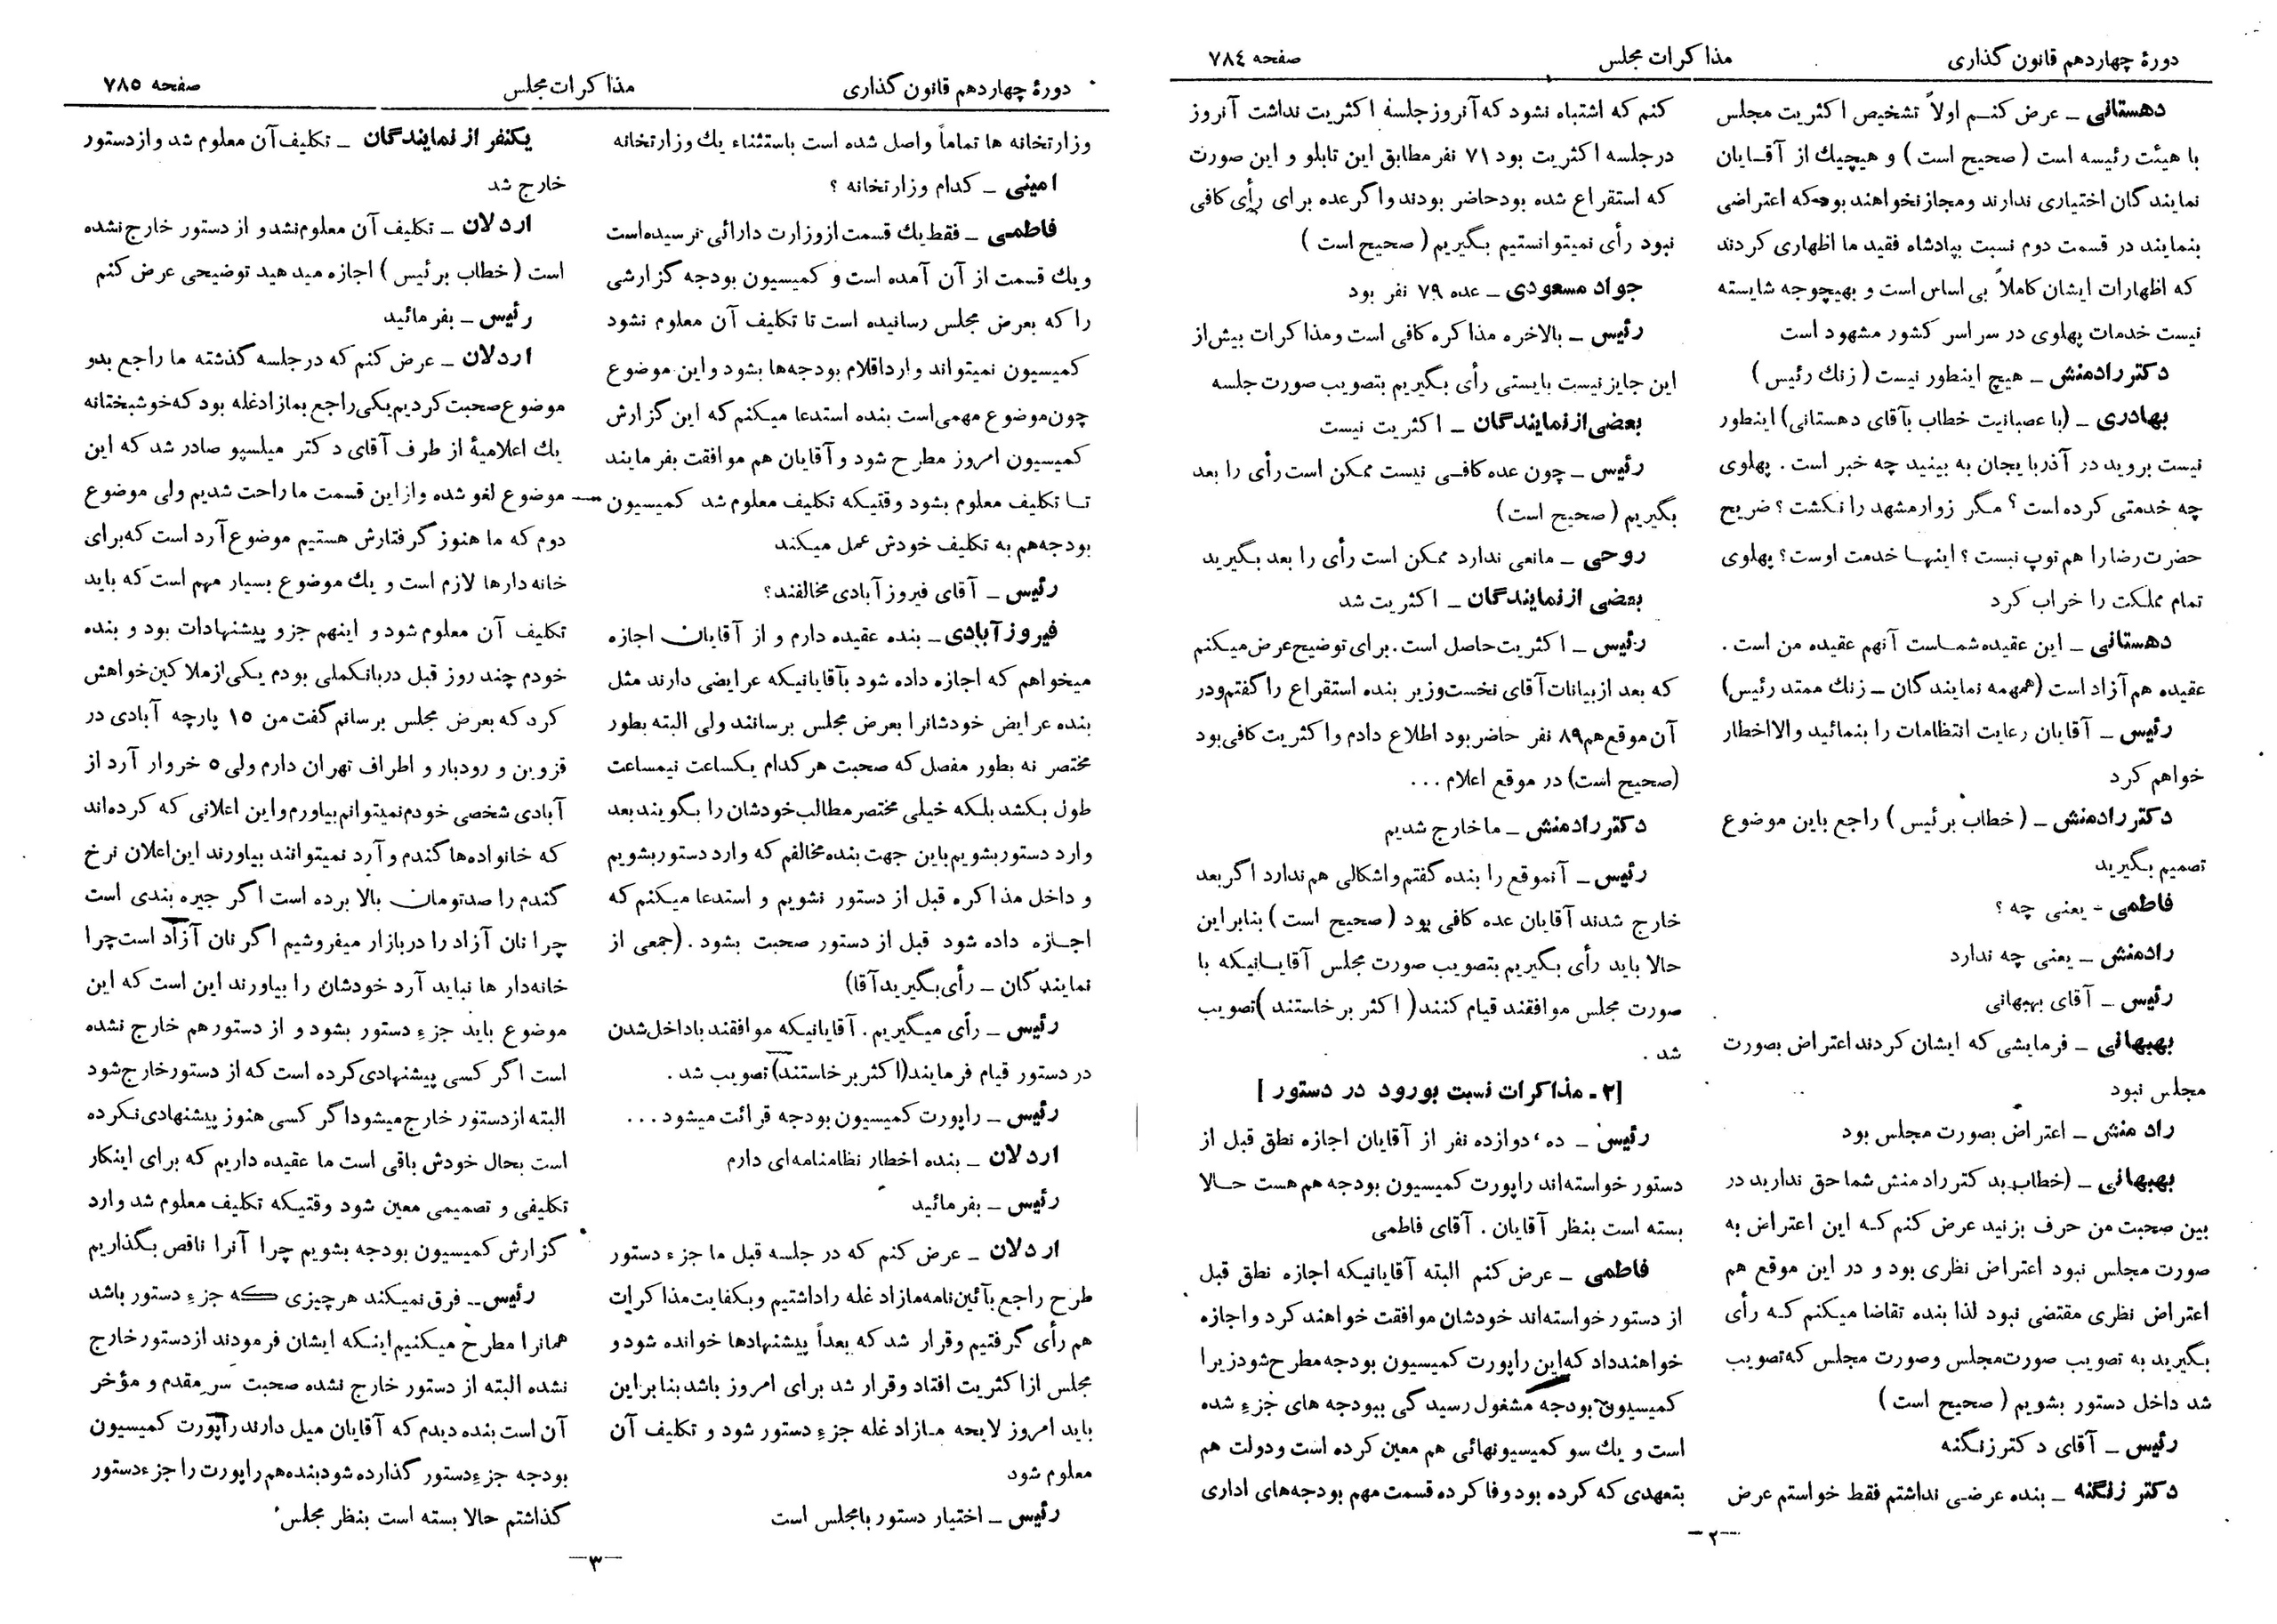 دورهٔ چهاردهم قانون گذاری
مذاکرات مجلس
صفحه ۷۸٤
دهستانی ـ عرض کنـم اولاً تشخیص اکثریت مجلس
با هیئت رئیسه است (صحیح است) و هیچیك از آقـایان
نمایندگان اختیاری ندارند ومجاز نخواهند بود که اعتراضی
بنمایند در قسمت دوم نسبت بپادشاه فقید ما اظهاری کردند
که اظهارات ایشان کاملاً بی اساس است و بهیچوجه شایسته
نیست خدمات پهلوی در سراسر کشور مشهود است
دکتر رادمنش ـ هیچ اینطور نیست (زنك رئیس)
بهادری ـ (با عصبانیت خطاب بآقای دهستانی) اینطور
نیست بروید در آذربایجان به بینید چه خبر است . پهلوی
چه خدمتی کرده است ؟ مگر زوار مشهد را نکشت ؟ ضریح
حضرت رضا را هم توپ نبست ؟ اینهـا خدمت اوست ؟ پهلوی
تمام مملکت را خراب کرد
دهستانی ـ این عقیده شمـاست آنهم عقیده من است .
عقیده هم آزاد است (همهمه نمایندگان ـ زنك ممتد رئیس)
رئیس ـ آقایان رعایت انتظامات را بنمائید والا اخطار
خواهم کرد
دکتر رادمنش ـ (خطاب برئیس) راجع باین موضوع
تصمیم بگیرید
فاطمی - یعنی چه ؟
رادمنش ـ یعنی چه ندارد
رئیس ـ آقای بهبهانی
بهبهانی ـ فرمایشی که ایشان کردند اعتراض بصورت
مجلس نبود
رادمنش ـ اعتراض بصورت مجلس بود
بهبهانی ـ (خطاب بد کتر رادمنش شما حق ندارید در
بین صحبت من حرف بزنید عرض کنم کـه این اعتراض به
صورت مجلس نبود اعتراض نظری بود و در این موقع هم
اعتراض نظری مقتضی نبود لذا بنده تقاضا میکنم کـه رأی
بگیرید به تصویب صورت مجلس وصورت مجلس که تصویب
شد داخل دستور بشویم (صحیح است)
رئیس ـ آقای دکتر زنگنه
دکتر زنگنه ـ بنده عرضی نداشتم فقط خواستم عرض
کنم که اشتباه نشود که آنروز جلسه اکثریت نداشت آنروز
در جلسه اکثریت بود ۷۱ نفر مطابق این تابلو و این صورت
که استقراع شده بود حاضر بودند واگر عده برای رأی کافی
نبود رأی نمیتوانستیم بگیریم (صحیح است)
جواد مسعودی ـ عده ۷۹ نفر بود
رئیس ـ بالاخره مذاکره کافی است ومذاکرات بیش از
این جایز نیست بایستی رأی بگیریم بتصویب صورت جلسه
بعضی از نمایندگان ـ اکثریت نیست
رئیس ـ چون عده کافـی نیست ممکن است رأی را بعد
بگیریم (صحیح است)
روحی ـ مانعی ندارد ممکن است رأی را بعد بگیرید
بعضی از نمایندگان ـ اکثریت شد
رئیس ـ اکثریت حاصل است. برای توضیح عرض میکنم
که بعد از بیانات آقای نخست وزیر بنده استقراع را گفتم ودر
آن موقع هم ۸۹ نفر حاضر بود اطلاع دادم واکثریت کافی بود
(صحیح است) در موقع اعلام . . .
دکتر رادمنش ـ ما خارج شدیم
رئیس ـ آنموقع را بنده گفتم واشکالی هم ندارد اگر بعد
خارج شدند آقایان عده کافی بود (صحیح است) بنابراین
حالا باید رأی بگیریم بتصویب صورت مجلس آقایـانیکه با
صورت مجلس موافقند قیام کنند (اکثر برخاستند) تصویب
شد .
[۲ - مذاکرات نسبت بورود در دستور]
رئیس ـ ده ، دوازده نفر از آقایان اجازه نطق قبل از
دستور خواسته‌اند راپورت کمیسیون بودجه هم هست حـالا
بسته است بنظر آقایان . آقای فاطمی
فاطمی ـ عرض کنم البته آقایانیکه اجازه نطق قبل
از دستور خواسته‌اند خودشان موافقت خواهند کرد واجازه
خواهند داد که این راپورت کمیسیون بودجه مطرح شود زیرا
کمیسیون بودجه مشغول رسیدگی ببودجه های جزء شده
است و یك سو کمیسیونهائی هم معین کرده است ودولت هم
بتعهدی که کرده بود وفا کرده قسمت مهم بودجه‌های اداری
ـ۲ـ
دورهٔ چهاردهم قانون گذاری
مذاکرات مجلس
صفحه ۷۸٥
وزارتخانه ها تماماً واصل شده است باستثناء یك وزارتخانه
امینی ـ کدام وزارتخانه ؟
فاطمی ـ فقط یك قسمت از وزارت دارائی نرسیده است
ویك قسمت از آن آمده است و کمیسیون بودجه گزارشی
را که بعرض مجلس رسانیده است تا تکلیف آن معلوم نشود
کمیسیون نمیتواند وارد اقلام بودجه‌ها بشود واین موضوع
چون موضوع مهمی است بنده استدعا میکنم که این گزارش
کمیسیون امروز مطرح شود و آقایان هم موافقت بفرمایند
تـا تکلیف معلوم بشود وقتیکه تکلیف معلوم شد کمیسیون
بودجه هم به تکلیف خودش عمل میکند
رئیس ـ آقای فیروزآبادی مخالفند؟
فیروزآبادی ـ بنده عقیده دارم و از آقایان اجازه
میخواهم که اجازه داده شود بآقایانیکه عرایضی دارند مثل
بنده عرایض خودشانرا بعرض مجلس برسانند ولی البته بطور
مختصر نه بطور مفصل که صحبت هر کدام یکساعت نیمساعت
طول بکشد بلکه خیلی مختصر مطالب خودشان را بگویند بعد
وارد دستور بشویم باین جهت بنده مخالفم که وارد دستور بشویم
و داخل مذاکره قبل از دستور نشویم و استدعا میکنم که
اجـازه داده شود قبل از دستور صحبت بشود . (جمعی از
نمایندگان ـ رأی بگیرید آقا)
رئیس ـ رأی میگیریم . آقایانیکه موافقند باداخل شدن
در دستور قیام فرمایند (اکثر برخاستند) تصویب شد .
رئیس ـ راپورت کمیسیون بودجه قرائت میشود . . .
اردلان ـ بنده اخطار نظامنامه‌ای دارم
رئیس ـ بفرمائید
اردلان ـ عرض کنم که در جلسه قبل ما جزء دستور
طرح راجع بآئین‌نامه مازاد غله را داشتیم وبکفایت مذاکرات
هم رأی گرفتیم وقرار شد که بعداً پیشنهادها خوانده شود و
مجلس از اکثریت افتاد وقرار شد برای امروز باشد بنابراین
باید امروز لایحه مـازاد غله جزء دستور شود و تکلیف آن
معلوم شود
رئیس ـ اختیار دستور بامجلس است
یکنفر از نمایندگان ـ تکلیف آن معلوم شد واز دستور
خارج شد
اردلان ـ تکلیف آن معلوم نشد و از دستور خارج نشده
است (خطاب برئیس) اجازه میدهید توضیحی عرض کنم
رئیس ـ بفرمائید
اردلان ـ عرض کنم که در جلسه گذشته ما راجع بدو
موضوع صحبت کردیم یکی راجع بمازاد غله بود که خوشبختانه
یك اعلامیهٔ از طرف آقای دکتر میلسپو صادر شد که این
موضوع لغو شده واز این قسمت ما راحت شدیم ولی موضوع
دوم که ما هنوز گرفتارش هستیم موضوع آرد است که برای
خانه دارها لازم است و یك موضوع بسیار مهم است که باید
تکلیف آن معلوم شود و اینهم جزو پیشنهادات بود و بنده
خودم چند روز قبل در بانک ملی بودم یکی از ملاکین خواهش
کرد که بعرض مجلس برسانم گفت من ۱٥ پارچه آبادی در
قزوین و رودبار و اطراف تهران دارم ولی ٥ خروار آرد از
آبادی شخصی خودم نمیتوانم بیاورم واین اعلانی که کرده‌اند
که خانواده‌ها گندم و آرد نمیتوانند بیاورند این اعلان نرخ
گندم را صد تومان بالا برده است اگر جیره بندی است
چرا نان آزاد را در بازار میفروشیم اگر نان آزاد است چرا
خانه‌دار ها نباید آرد خودشان را بیاورند این است که این
موضوع باید جزء دستور بشود و از دستور هم خارج نشده
است اگر کسی پیشنهادی کرده است که از دستور خارج شود
البته از دستور خارج میشود اگر کسی هنوز پیشنهادی نکرده
است بحال خودش باقی است ما عقیده داریم که برای اینکار
تکلیفی و تصمیمی معین شود وقتیکه تکلیف معلوم شد وارد
گزارش کمیسیون بودجه بشویم چرا آنرا ناقص بگذاریم
رئیس ـ فرق نمیکند هر چیزی که جزء دستور باشد
همانرا مطرح میکنیم اینکه ایشان فرمودند از دستور خارج
نشده البته از دستور خارج نشده صحبت سر مقدم و مؤخر
آن است بنده دیدم که آقایان میل دارند راپورت کمیسیون
بودجه جزء دستور گذارده شود بنده هم راپورت را جزء دستور
گذاشتم حالا بسته است بنظر مجلس
ـ۳ـ